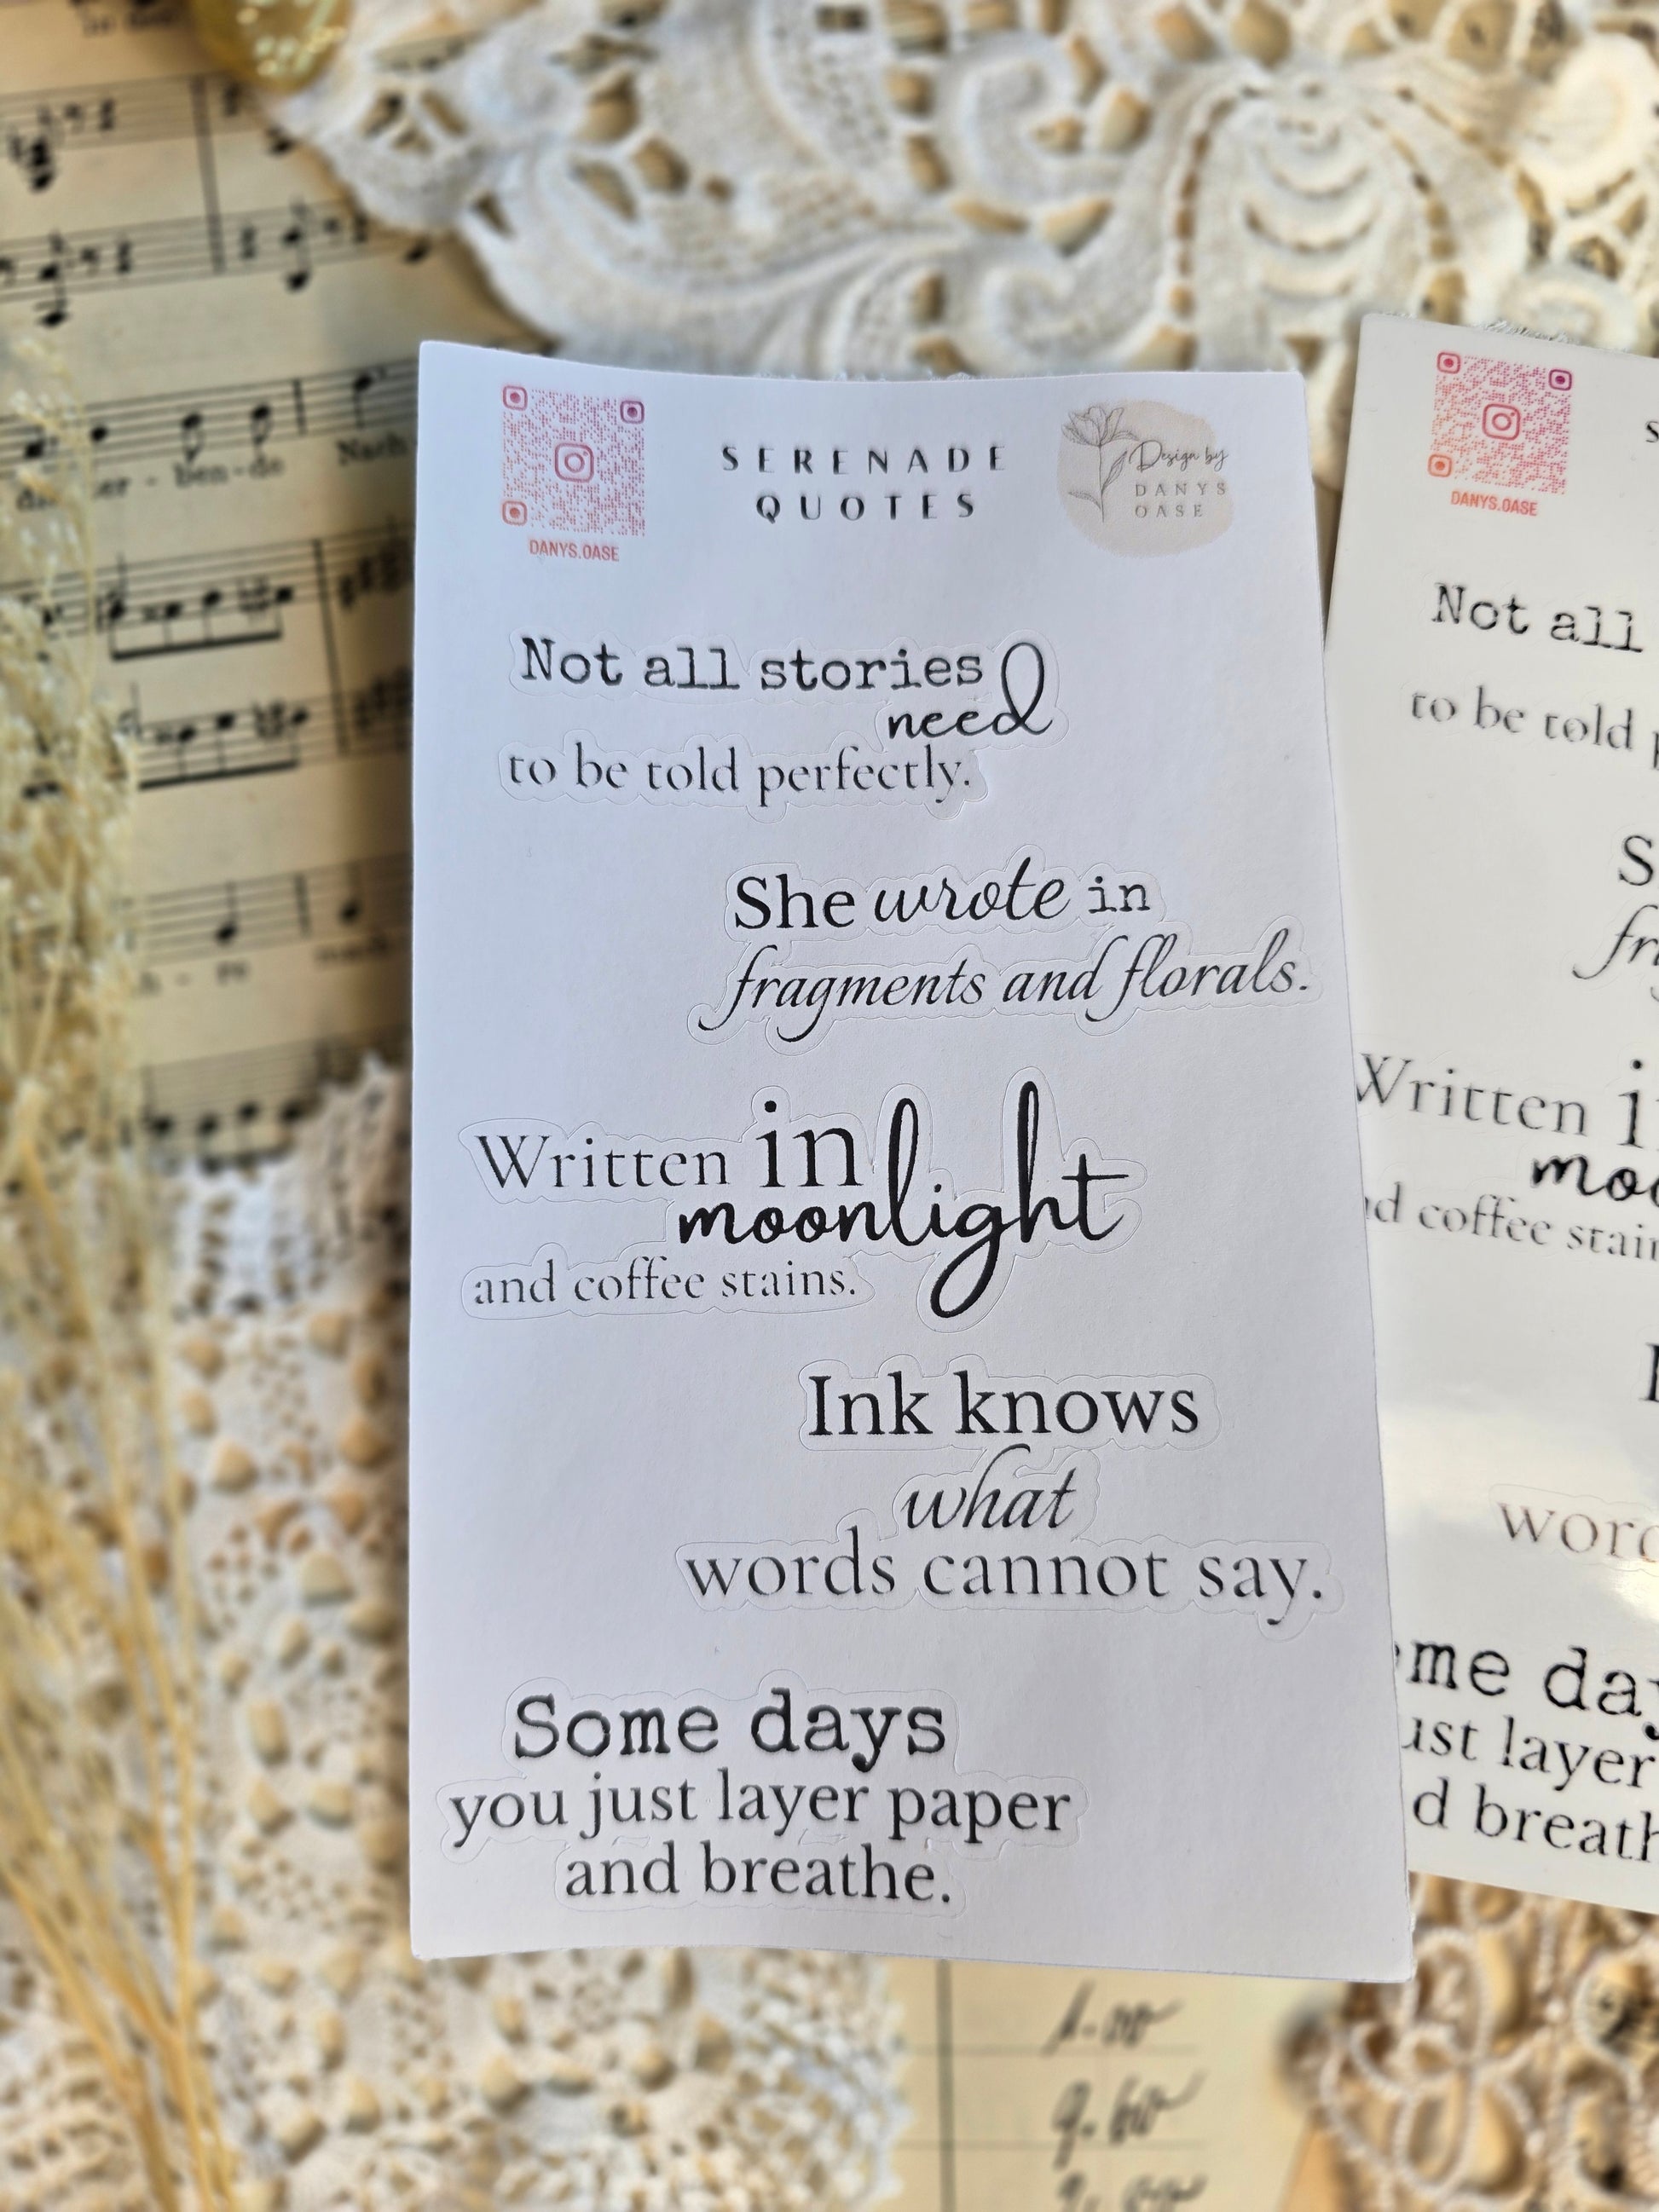 SERENADE
QUOTES
Design by
DANYS
OASE
DANYS.OASE
Not all stories
need
to be told perfectly.
She wrote in
fragments and florals.
Written in
moonlight
and coffee stains.
Ink knows
what
words cannot say.
Some days
you just layer paper
and breathe.
DANYS.OASE
Not all
to be told
Written
coffee
layer